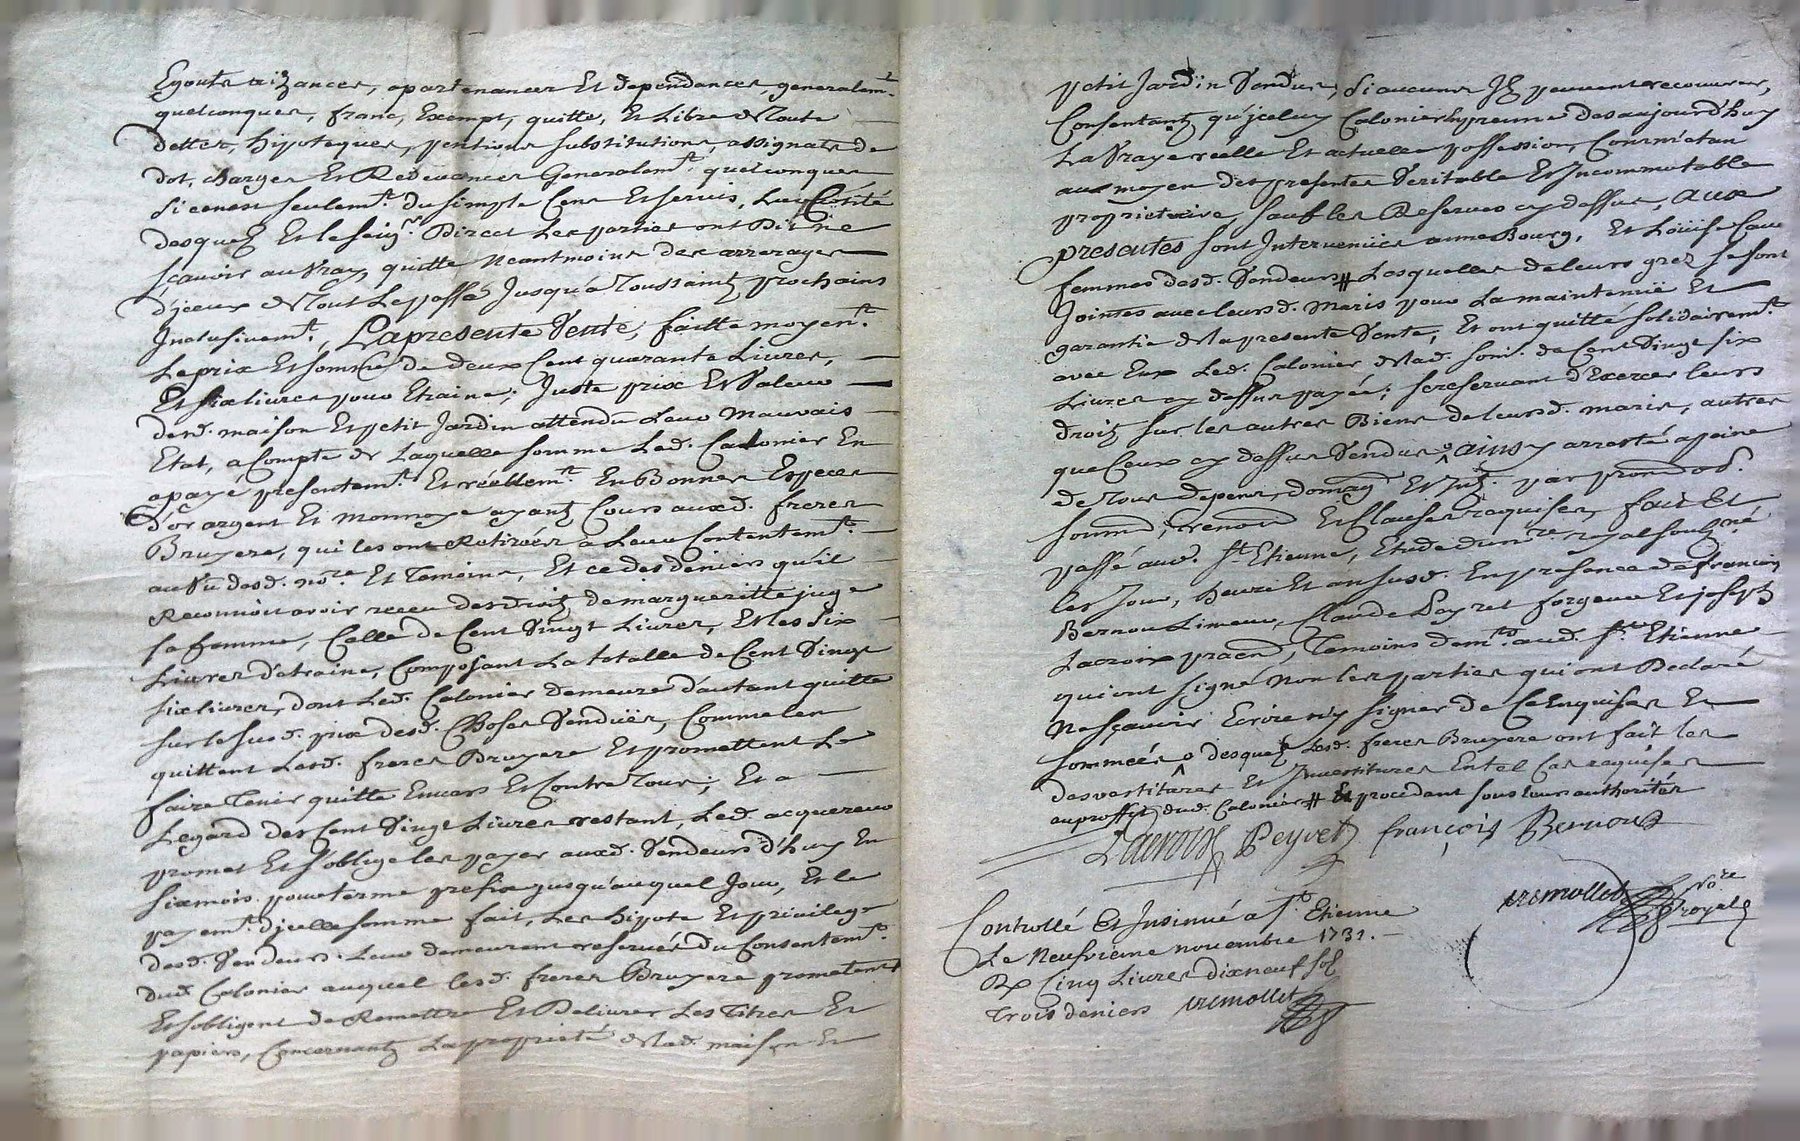 Egouts aizances, apartenances Et dependances, generalem.t
quelconques, franc, Exempt, quitte, Et Libre de Toute
dettes, hipoteques, pentions substitutions, assignats de
dot, charges Et Redevances Generalem.t quelconques
si cenest seulem.t du simple Cens Et servis, Leur Cottité
desquez Et le seig.r Direct Les parties ont Dit ne
sçauoir au Vray, quitte neantmoins des arrerages
d'jceux de Tout Le passé Jusqu'a Toussaintz prochains
Inclusivem.t, La presente Vente, faitte moyen.t
Le prix Et somme de deux Cent quarante Livres,
Et six livres pour Etraine; Juste prix Et Valeur
desd. maison Et petit Jardin attendu Leur Mauvais
Etat, a Compte de Laquelle somme Led. Calonier En
a payé presentem.t Et réellem.t En Bonnes Especes
d'or argent Et monnoye ayantz Cours auxd. freres
Bruyere, qui les ont Retirées a Leur Contentem.t
au Vu desd. no.re Et Temoins, Et ce des deniers qu'il
Reconnoit avoir receu des droitz de margueritte juge
sa femme, Celle de Cent Vingt Livres, Et les six
Livres d'etraine, Composant La totalle de Cent Vingt
six livres, dont Led. Calonier demeure d'autant quitte
sur le susd. prix desd. Choses Venduës, Comme len
quittent Lesd. freres Bruyere Et promettent Le
faire Tenir quitte Envers Et Contre Tous; Et a
Legard des Cent Vingt Livres restant, Led. acquereur
promet Et s'oblige les payer auxd. Vendeurs d'huy En
six mois pour terme prefix jusqu'auquel Jour, Et le
payem.t d'jcelle somme fait, Les hipote. Et privilege
desd. Vendeurs Leur demeurent reservés du Consentem.t
dud. Calonier auquel lesd. freres Bruyere prometent
Et s'obligent de Remettre Et Delivrer Les Titres Et
papiers, Concernantz La proprieté de lad. maison Et
petit Jardin Vendus, si aucuns Jlz peuvent recouvrer,
Consentantz qu'jceluy Calonier En prenne des aujourd'huy
La Vraye réelle Et actuelle possession, Comm'etan
au moyen des presentes Veritable Et Incommutable
proprietaire, sauf les Reserves cy dessus, Aux
presentes sont Intervenües anne Bourg, Et Loüise
femmes desd. Vendeurs # Lesquelles de leurs grez se sont
Jointes avec leursd. maris pour La maintenüe Et
garantie de la presente Vente, Et ont quitté solidairem.t
avec Eux Led. Calonier de lad. som.e de Cent Vingt six
Livres cy dessus payée; se reservant d'Exercer leurs
droitz sur les autres Biens de leursd. maris, autres
que Ceux cy dessus Vendus, ainsy arresté a peine
de Tous depens, domag. Et Int. par prom. ob.
soum., renon. Et Clauses requises, fait Et
passé aud. S.t Etienne, Etude du no.re royal soussigné
les Jour, heure Et an susd. En presence de françois
Bernou Limeur, Claude Peyret forgeur Et joseph
Lacroix pratn., Temoins dem.ts aud. S.t Etienne
qui ont signé Non les parties qui ont Declaré
Ne sçauoir Ecrire ny signer de Ce Enquises Et
sommées o desquelz Lesd. freres Bruyere ont fait les
desvestitures Et Investitures En tel Cas requises
au proffit dud. Calonier # Et procedant sous leurs authoritéz
Lacroix Peyret françois Bernoux
Controllé Et Insinué a S.t Etienne
Le Neufvieme novembre 1731.
Rx Cinq Livres dixneuf sols
Trois deniers tremollet
tremollet No.re
royal